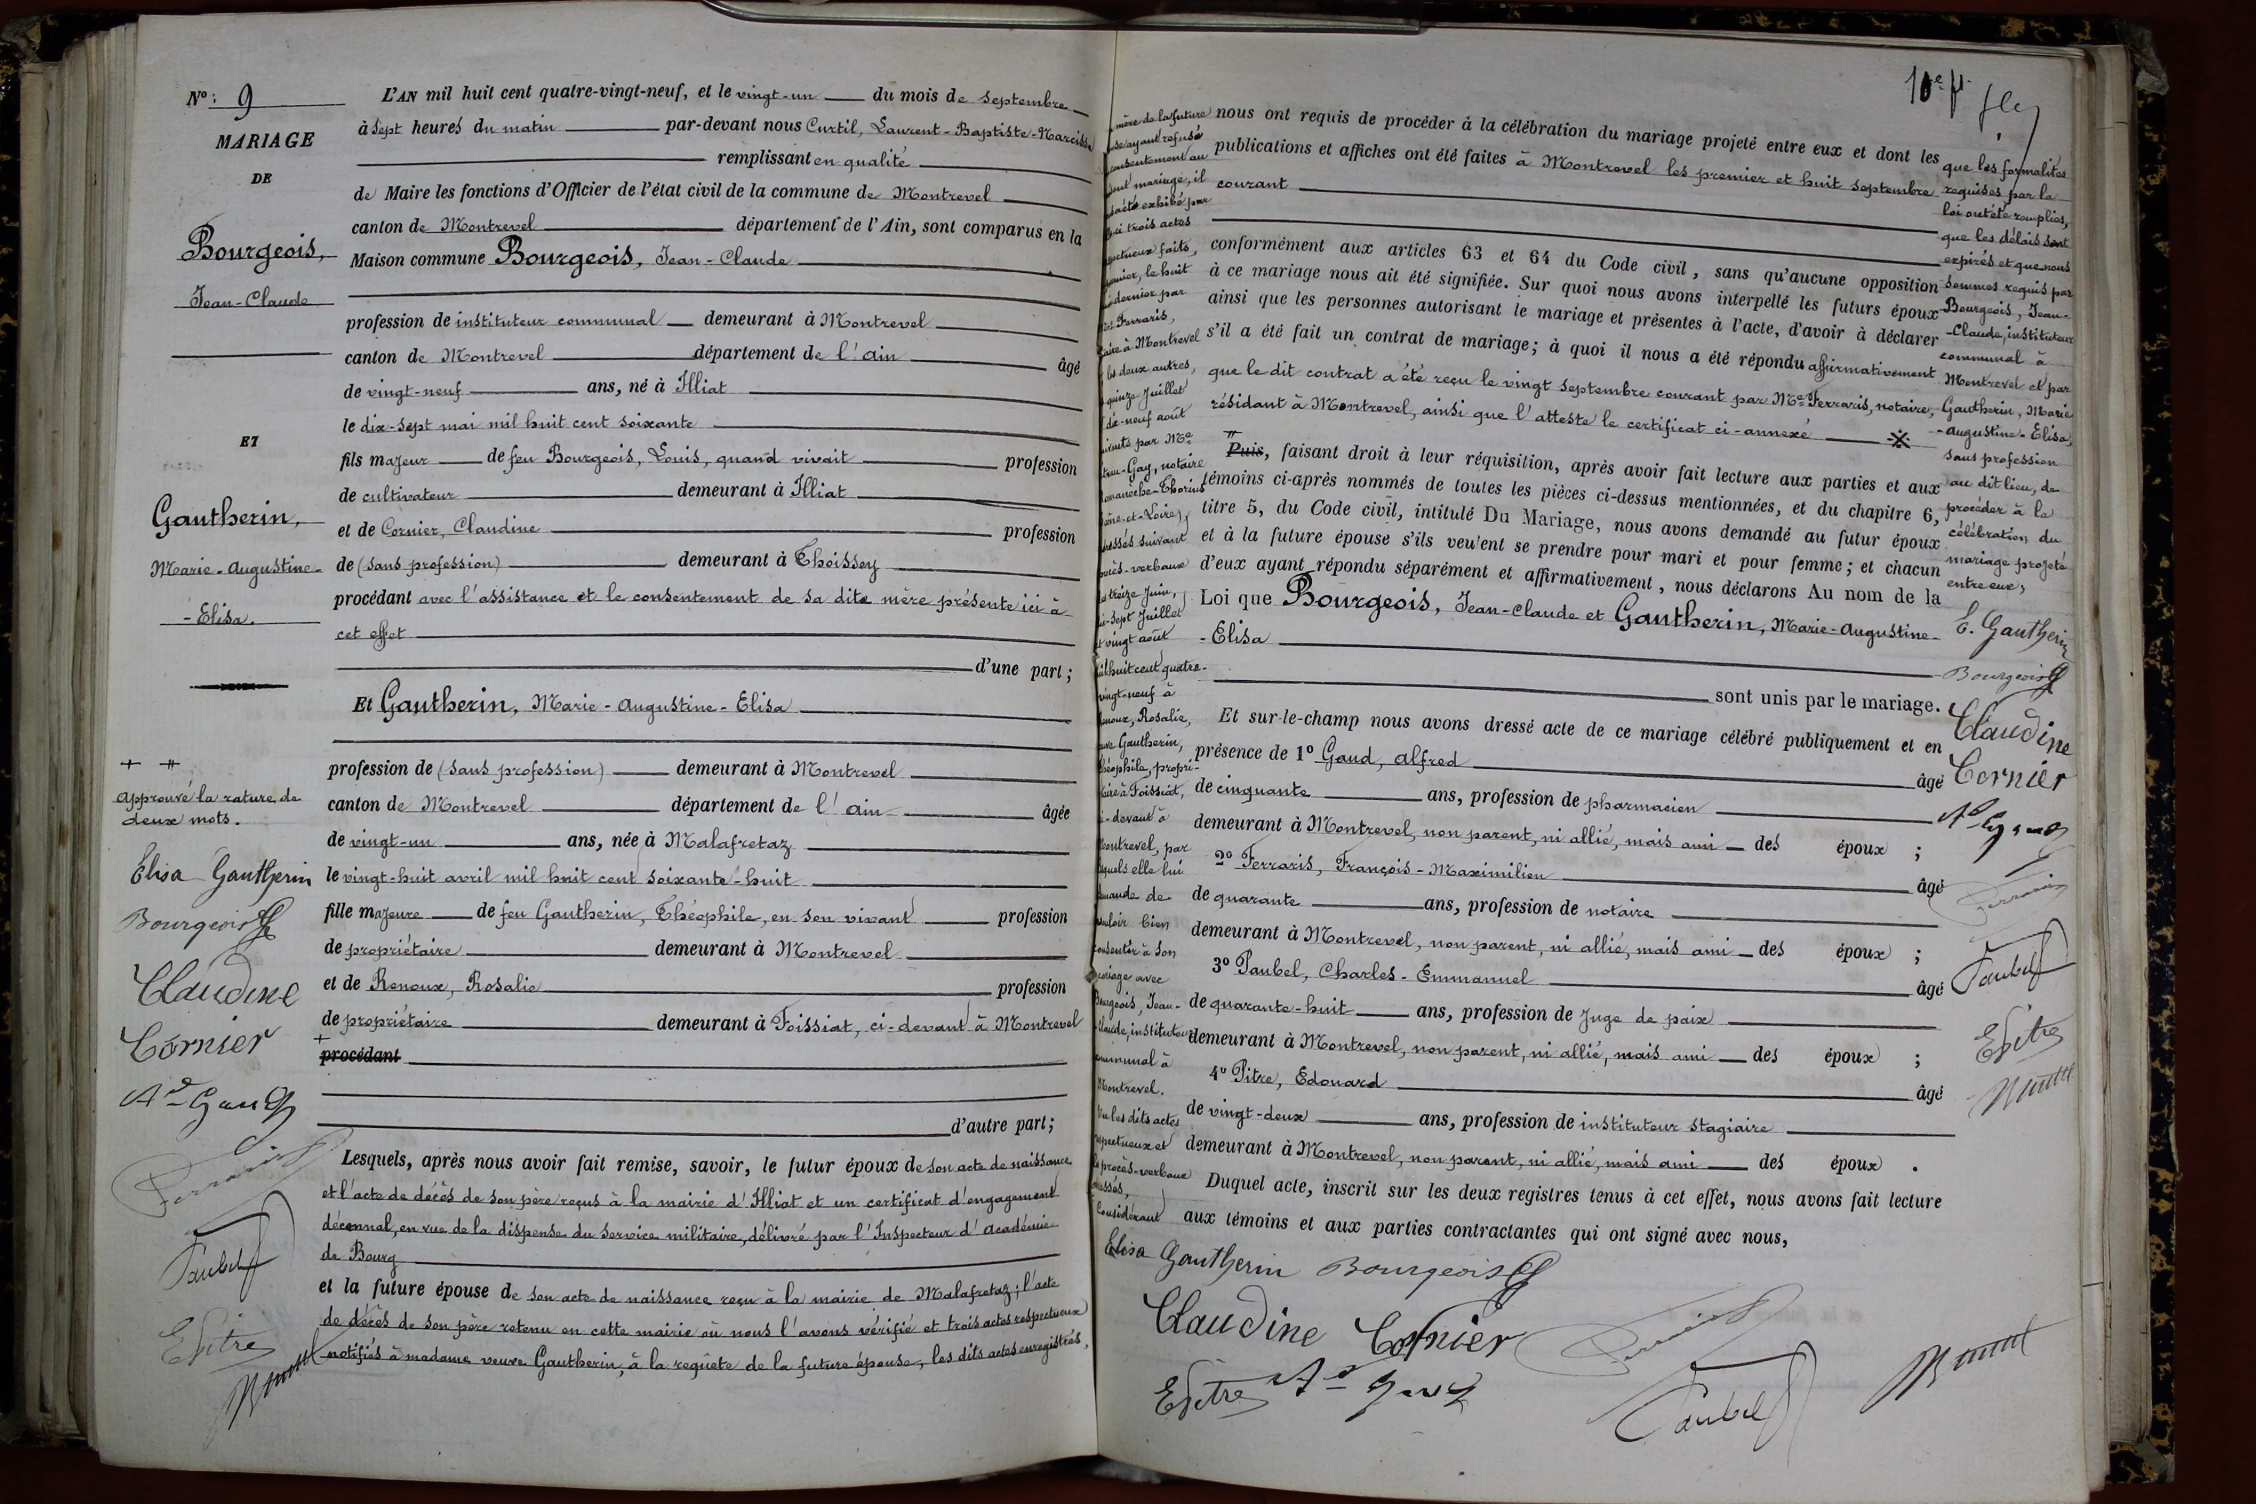 N°: 9
MARIAGE
DE
Bourgeois,
Jean-Claude
ET
Gautherin,
Marie-Augustine-
-Elisa.
Approuvé la rature de
deux mots.
Elisa Gautherin
Bourgeois
Claudine
Cornier
Ad Gaud
Ferraris
Paubel
E Pitre
L'AN mil huit cent quatre-vingt-neuf, et le vingt-un du mois de septembre
à sept heures du matin par-devant nous Curtil, Laurent-Baptiste-Narcisse
remplissant en qualité
de Maire les fonctions d'Officier de l'état civil de la commune de Montrevel
canton de Montrevel département de l'Ain, sont comparus en la
Maison commune Bourgeois, Jean-Claude
profession de instituteur communal demeurant à Montrevel
canton de Montrevel département de l'Ain âgé
de vingt-neuf ans, né à Illiat
le dix-sept mai mil huit cent soixante
fils majeur de feu Bourgeois, Louis, quand vivait profession
de cultivateur demeurant à Illiat
et de Cornier, Claudine profession
de (sans profession) demeurant à Thoissey
procédant avec l'assistance et le consentement de sa dite mère présente ici à
cet effet
d'une part;
Et Gautherin, Marie-Augustine-Elisa
profession de (sans profession) demeurant à Montrevel
canton de Montrevel département de l'Ain âgée
de vingt-un ans, née à Malafretaz
le vingt-huit avril mil huit cent soixante-huit
fille majeure de feu Gautherin, Théophile, en son vivant profession
de propriétaire demeurant à Montrevel
et de Renoux, Rosalie profession
de propriétaire demeurant à Foissiat, ci-devant à Montrevel
procédant
d'autre part;
Lesquels, après nous avoir fait remise, savoir, le futur époux de son acte de naissance
et l'acte de décès de son père reçus à la mairie d'Illiat et un certificat d'engagement
décennal, en vue de la dispense du service militaire, délivré par l'Inspecteur d'Académie
de Bourg
et la future épouse de son acte de naissance reçu à la mairie de Malafretaz; l'acte
de décès de son père retenu en cette mairie où nous l'avons vérifié et trois actes respectueux
notifiés à madame veuve Gautherin, à la requête de la future épouse, les dits actes enregistrés,
mère de la future
ayant refusé
consentement au
mariage, il
exhibé par
trois actes
faits,
le huit
dernier par
Ferraris,
à Montrevel
les deux autres,
quinze Juillet
dix-neuf août
par Me
Gay, notaire
Romanèche-Thorins
et-Loire),
suivant
verbaux
treize Juin,
sept Juillet
vingt août
huit cent quatre-
vingt-neuf à
Renoux, Rosalie,
Gautherin,
Théophile, propri-
à Foissiat,
ci-devant à
Montrevel, par
elle lui
demande de
vouloir bien
consentir à son
mariage avec
Bourgeois, Jean-
Claude, instituteur
communal à
Montrevel.
Vu les dits actes
respectueux et
procès-verbaux
Considérant
10e ft
nous ont requis de procéder à la célébration du mariage projeté entre eux et dont les
publications et affiches ont été faites à Montrevel les premier et huit septembre
courant
conformément aux articles 63 et 64 du Code civil, sans qu'aucune opposition
à ce mariage nous ait été signifiée. Sur quoi nous avons interpellé les futurs époux
ainsi que les personnes autorisant le mariage et présentes à l'acte, d'avoir à déclarer
s'il a été fait un contrat de mariage; à quoi il nous a été répondu affirmativement
que le dit contrat a été reçu le vingt septembre courant par Me Ferraris, notaire,
résidant à Montrevel, ainsi que l'atteste le certificat ci-annexé
Puis, faisant droit à leur réquisition, après avoir fait lecture aux parties et aux
témoins ci-après nommés de toutes les pièces ci-dessus mentionnées, et du chapitre 6,
titre 5, du Code civil, intitulé Du Mariage, nous avons demandé au futur époux
et à la future épouse s'ils veulent se prendre pour mari et pour femme; et chacun
d'eux ayant répondu séparément et affirmativement, nous déclarons Au nom de la
Loi que Bourgeois, Jean-Claude et Gautherin, Marie-Augustine-
-Elisa
sont unis par le mariage.
Et sur-le-champ nous avons dressé acte de ce mariage célébré publiquement et en
présence de 1° Gaud, Alfred âgé
de cinquante ans, profession de pharmacien
demeurant à Montrevel, non parent, ni allié, mais ami des époux ;
2° Ferraris, François-Maximilien âgé
de quarante ans, profession de notaire
demeurant à Montrevel, non parent, ni allié, mais ami des époux ;
3° Paubel, Charles-Emmanuel âgé
de quarante-huit ans, profession de Juge de paix
demeurant à Montrevel, non parent, ni allié, mais ami des époux ;
4° Pitre, Edouard âgé
de vingt-deux ans, profession de instituteur stagiaire
demeurant à Montrevel, non parent, ni allié, mais ami des époux .
Duquel acte, inscrit sur les deux registres tenus à cet effet, nous avons fait lecture
aux témoins et aux parties contractantes qui ont signé avec nous,
Elisa Gautherin Bourgeois
Claudine Cornier Ferraris
E Pitre Ad Gaud Paubel
que les formalités
requises par la
loi ont été remplies,
que les délais sont
expirés et que nous
sommes requis par
Bourgeois, Jean-
-Claude, instituteur
communal à
Montrevel et par
Gautherin, Marie
-Augustine-Elisa,
sans profession
au dit lieu, de
procéder à la
célébration du
mariage projeté
entre eux,
E. Gautherin
Bourgeois
Claudine
Cornier
Ad Gaud
Ferraris
Paubel
E Pitre